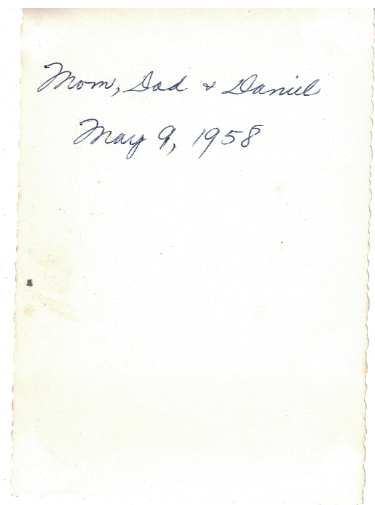 Mom, Dad & Daniel
May 9, 1958